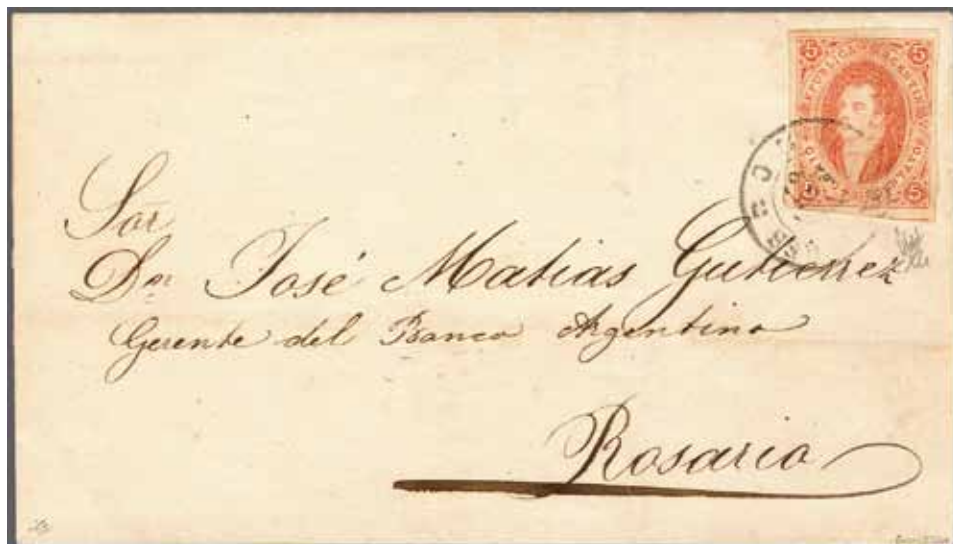 5 REPUBLICA ARGENTINA 5
5 5
Sor
Dn José Matias Gutierrez
Gerente del Banco Argentino
Rosario